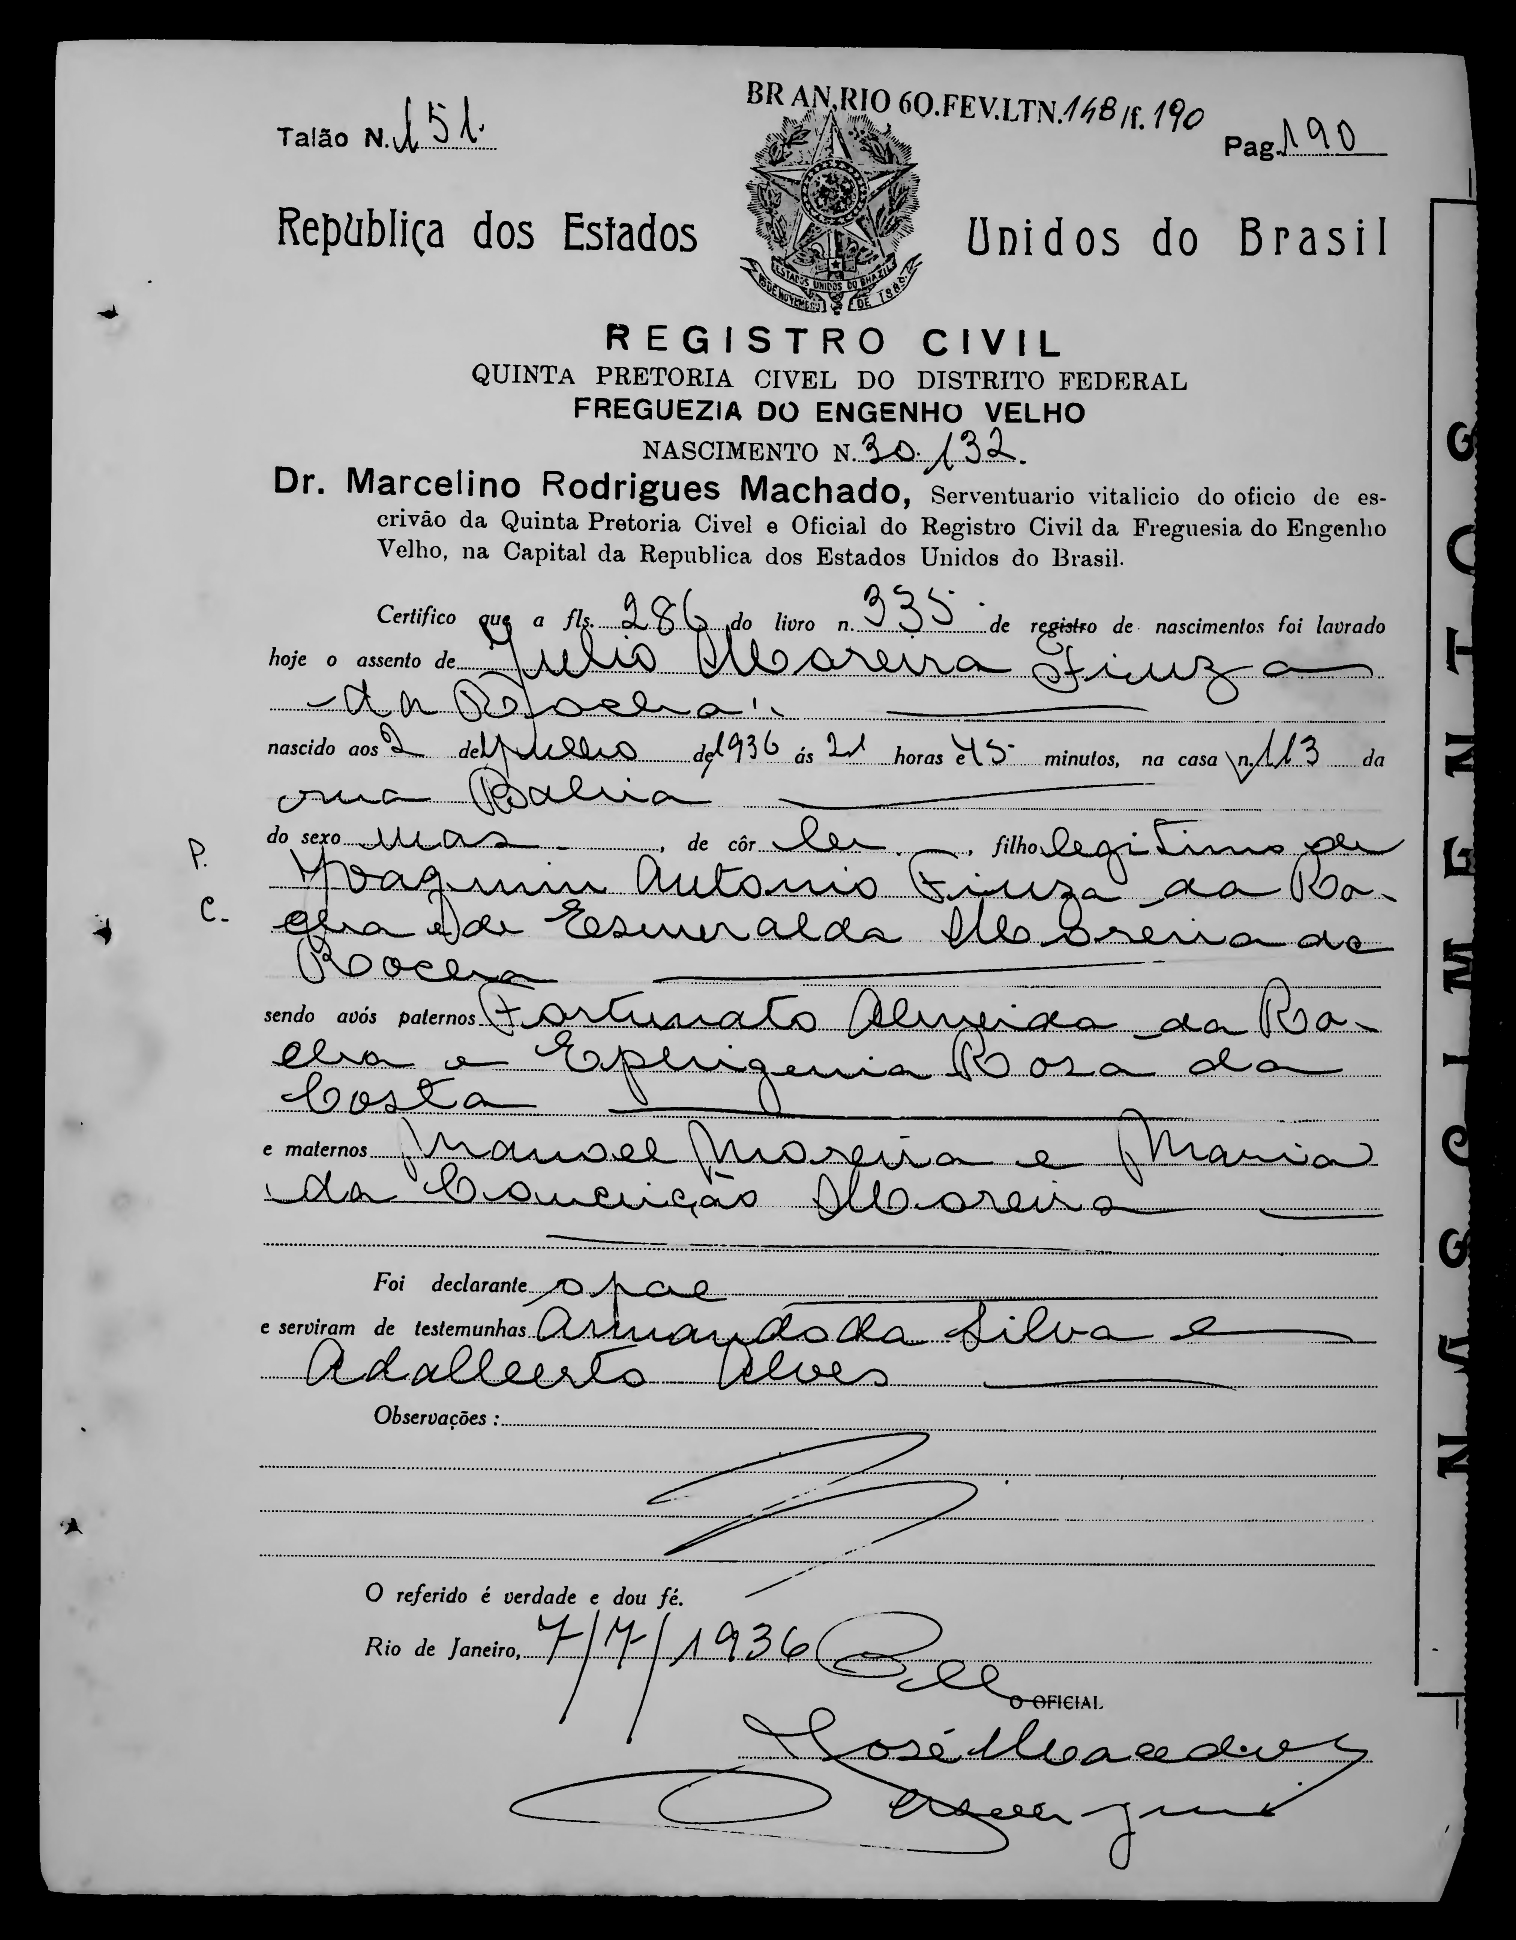 BR AN,RIO 6O.FEV.LTN.148/f.190
Talão N. 151. Pag. 190
Republica dos Estados Unidos do Brasil
ESTADOS UNIDOS DO BRAZIL
15 DE NOVEMBRO DE 1889
REGISTRO CIVIL
QUINTA PRETORIA CIVEL DO DISTRITO FEDERAL
FREGUEZIA DO ENGENHO VELHO
NASCIMENTO N. 30.132.
Dr. Marcelino Rodrigues Machado, Serventuario vitalicio do oficio de es-
crivão da Quinta Pretoria Civel e Oficial do Registro Civil da Freguesia do Engenho
Velho, na Capital da Republica dos Estados Unidos do Brasil.
Certifico que a fls. 286 do livro n. 335 de registro de nascimentos foi lavrado
hoje o assento de Julio Moreira Fiuza
da Rocha
nascido aos 2 de Julho de 1936 ás 21 horas e 45 minutos, na casa n. 113 da
rua Bahia
do sexo mas, de côr , filho legitimo de
P.
Joaquim Antonio Fiuza da Ro-
C.
cha e de Esmeralda Moreira da
Rocha
sendo avós paternos Fortunato Almeida da Ro-
cha e Ephigenia Rosa da
Costa
e maternos Manoel Moreira e Maria
da Conceição Moreira
Foi declarante o pae
e serviram de testemunhas Armando da Silva e
Adalberto Alves
Observações :
O referido é verdade e dou fé.
Rio de Janeiro, 7/7/1936
O OFICIAL
José
NASCIMENTO G